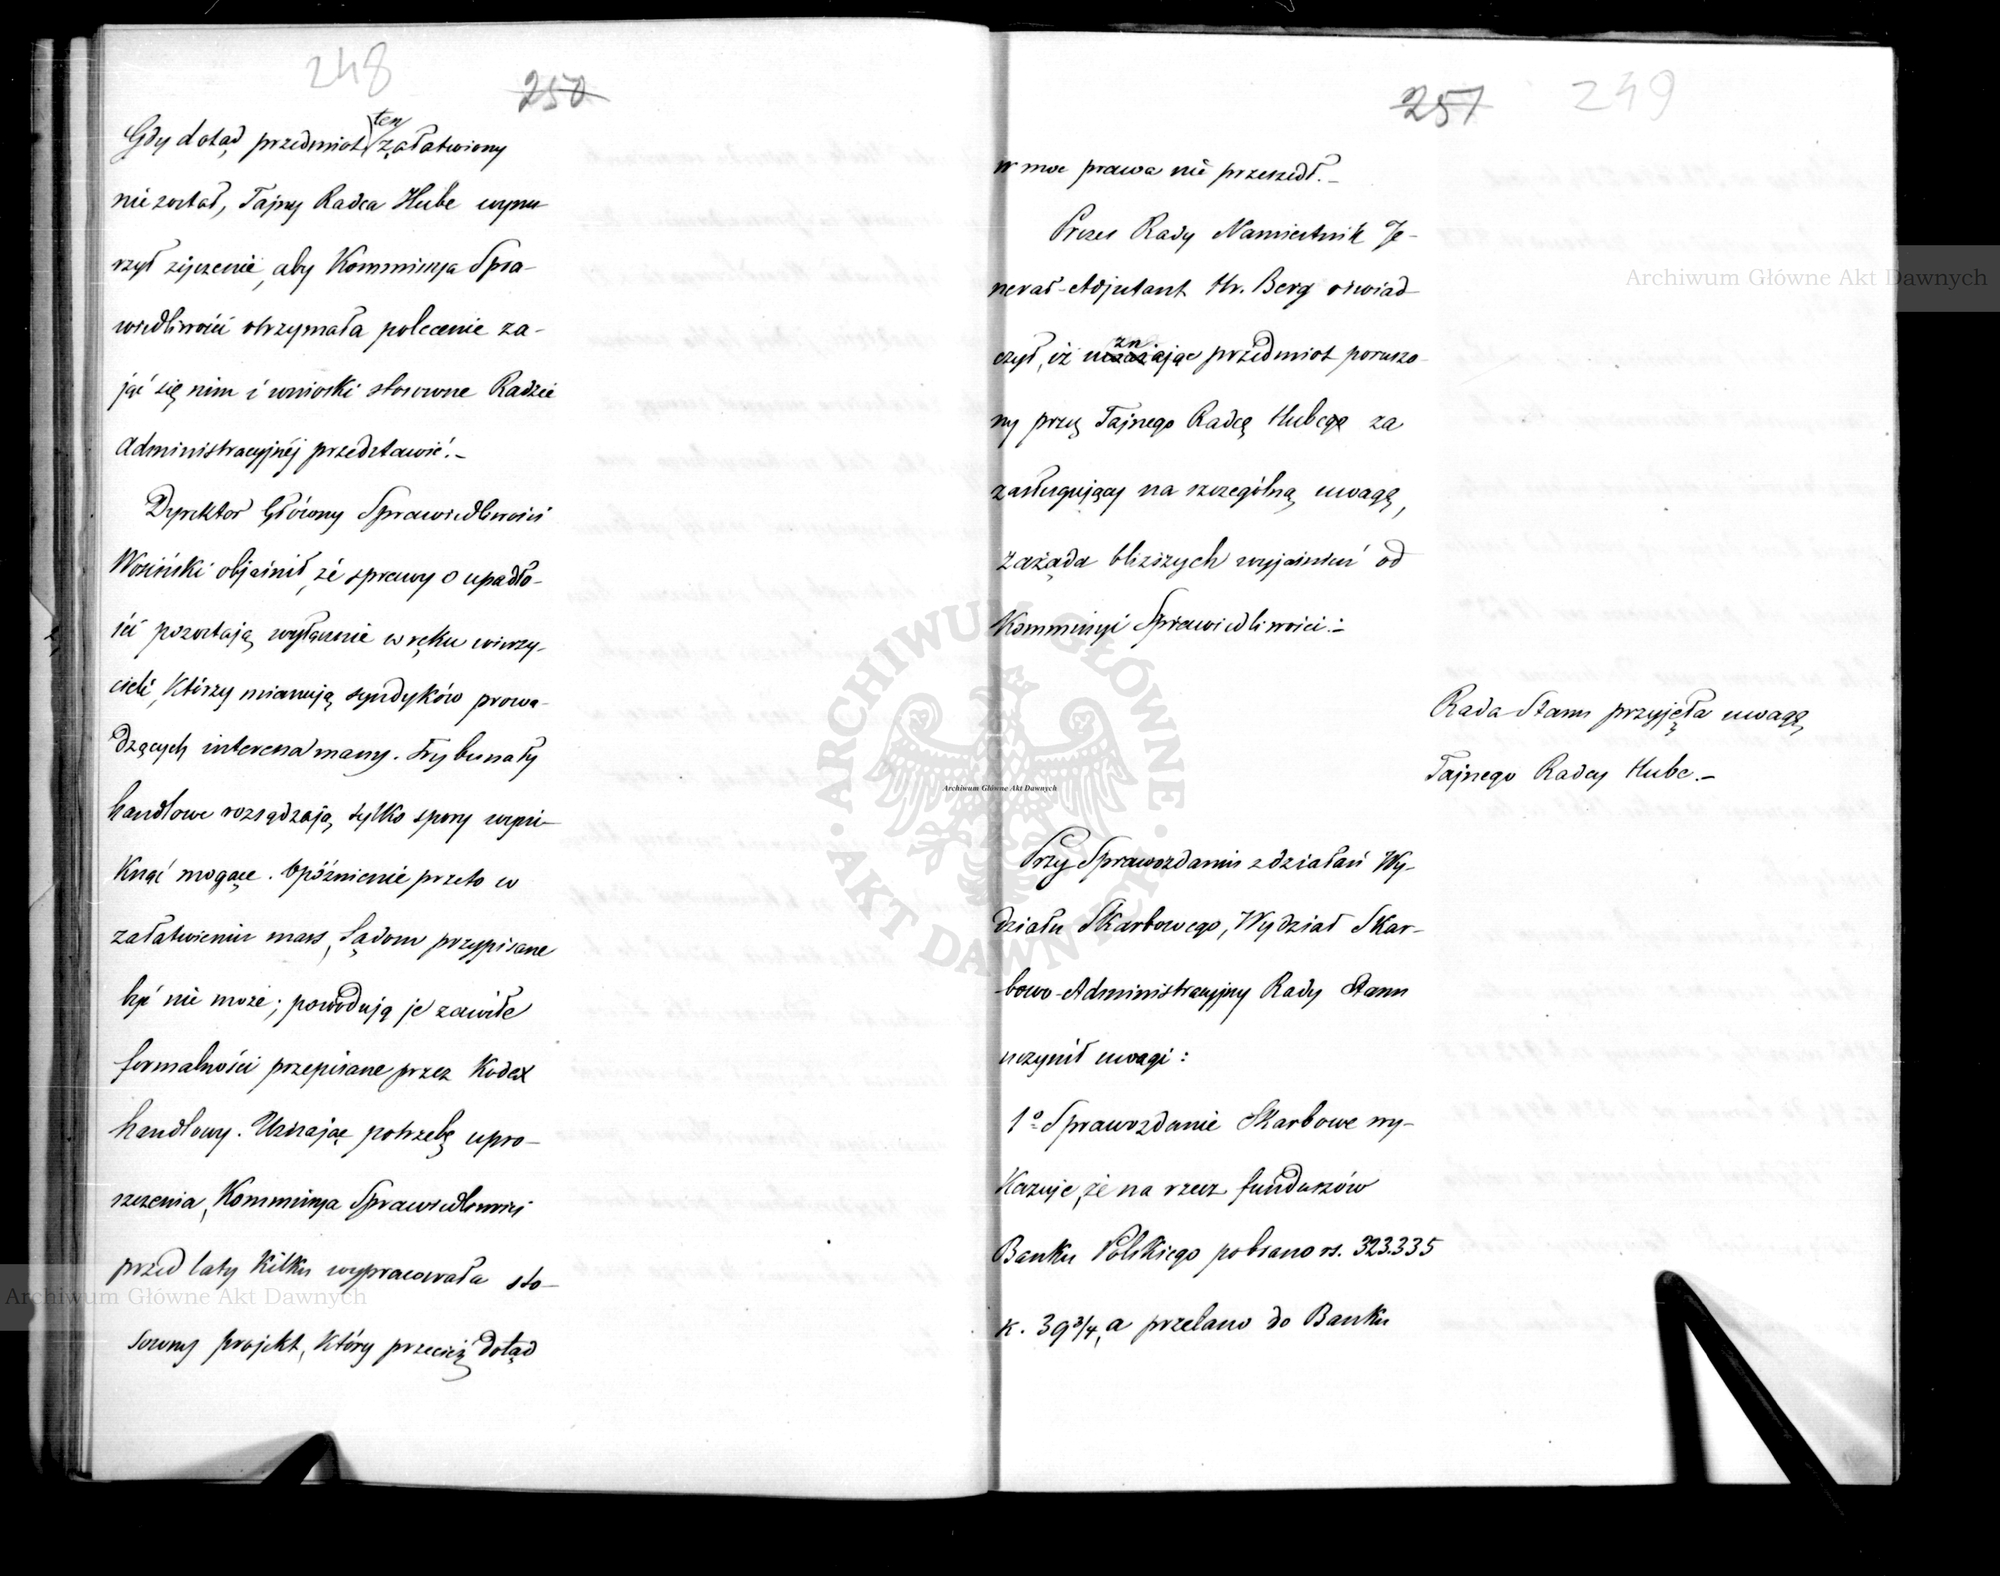 248
250
Gdy dotąd przedmiot ten załatwiony
nie został, Tajny Radca Hube wynu-
rzył życzenie, aby Kommissya Spra-
wiedliwości otrzymała polecenie za-
jąć się nim i wnioski stosowne Radzie
Administracyjnéj przedstawić.–
Dyrektor Główny Sprawiedliwości
Woziński objaśnił, że sprawy o upadło-
ści pozostają wyłącznie w ręku wierzy-
cieli, którzy mianują syndyków prowa-
dzących interessa massy. Trybunały
handlowe rozsądzają tylko spory wyni-
knąć mogące. Opóźnienie przeto w
załatwieniu mass, Sądom przypisane
być nie może; powodują je zawiłe
formalności przepisane przez Kodex
handlowy. Uznając potrzebę upro-
szczenia, Kommissya Sprawiedliwości
przed laty kilku wypracowała sto-
sowny projekt, który przecież dotąd
251
249
w moc prawa nie przeszedł.–
Prezes Rady Namiestnik Je-
nerał-Adjutant Hr. Berg oświad-
czył, iż uznając przedmiot poruszo-
ny przez Tajnego Radcę Hubego za
zasługujący na szczególną uwagę,
zażąda bliższych wyjaśnień od
Kommissyi Sprawiedliwości.–
Rada Stanu przyjęła uwagę
Tajnego Radcy Hube.–
Przy Sprawozdaniu z działań Wy-
działu Skarbowego, Wydział Skar-
bowo-Administracyjny Rady Stanu
uczynił uwagi:
1º Sprawozdanie Skarbowe wy-
kazuje, że na rzecz funduszów
Banku Polskiego pobrano rs. 323.335
k. 39 3/4, a przelano do Banku
Archiwum Główne Akt Dawnych
Archiwum Główne Akt Dawnych
Archiwum Główne Akt Dawnych
ARCHIWUM GŁÓWNE
AKT DAWNYCH